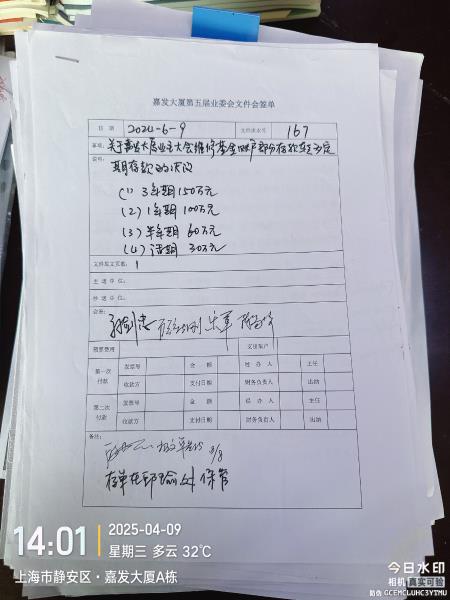 嘉发大厦第五届业委会文件会签单
日期 2024-6-9 文件流水号 167
事项: 关于嘉发大厦业主大会维修基金账户部分存款转为定
说明: 期存款的决议
(1) 3年期 150万元
(2) 1年期 100万元
(3) 半年期 60万元
(4) 活期 30万元
文件及文页数: 1
主送单位:
抄送单位:
会签:
预算费用 支出账户
第一次付款 发票号 金额 经办人 主任
收款方 支付日期 财务负责人 出纳
第二次付款 发票号 金额 经办人 主任
收款方 支付日期 财务负责人 出纳
备注:
存单在邱瑜处保管
14:01 2025-04-09
星期三 多云 32℃
上海市静安区·嘉发大厦A栋
今日水印
相机 真实可验
防伪 GCEMCLUHC3YTMU